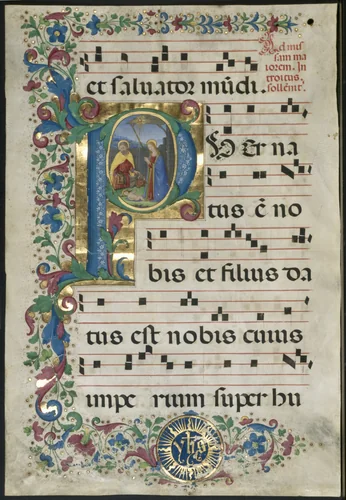 et saluator mūdi.
Ad mis
sam ma
iorem. In
troitus
sollēnis.
P VER na
tus ē no
bis et filius da
tus est nobis cuius
impe rium super hu
yhs